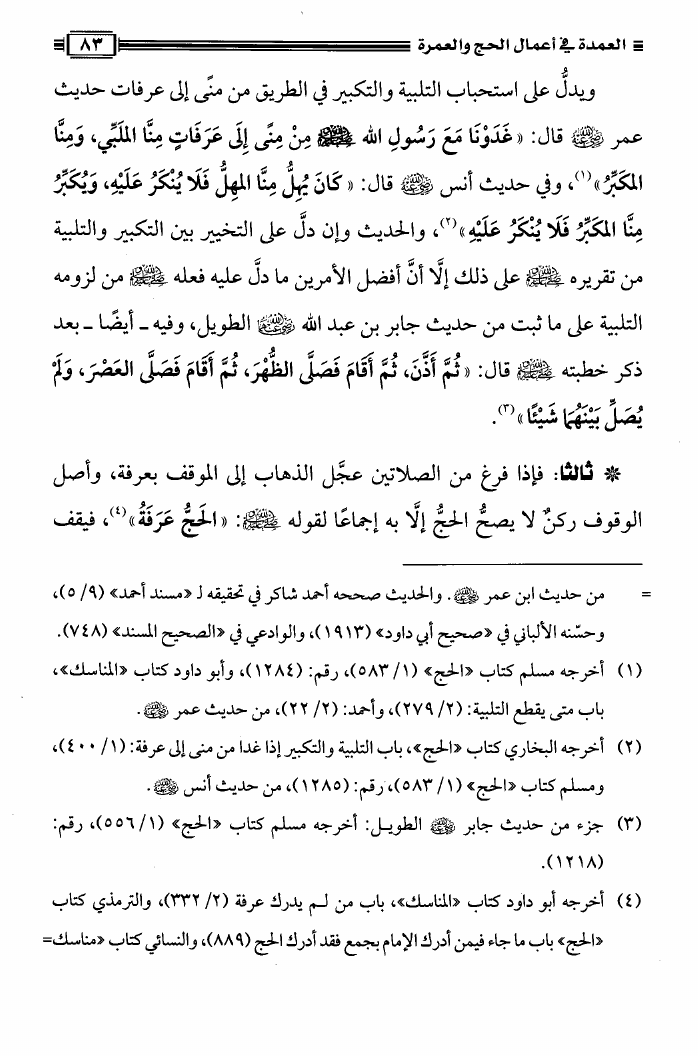 العمدة في أعمال الحج والعمرة ٨٣
ويدلُّ على استحباب التلبية والتكبير في الطريق من منًى إلى عرفات حديث
عمر رضي الله عنه قال: «غَدَوْنَا مَعَ رَسُولِ الله ﷺ مِنْ مِنًى إِلَى عَرَفَاتٍ مِنَّا المُلَبِّي، وَمِنَّا
المُكَبِّرُ»(١)، وفي حديث أنس رضي الله عنه قال: «كَانَ يُهِلُّ مِنَّا المُهِلُّ فَلَا يُنْكَرُ عَلَيْهِ، وَيُكَبِّرُ
مِنَّا المُكَبِّرُ فَلَا يُنْكَرُ عَلَيْهِ»(٢)، والحديث وإن دلَّ على التخيير بين التكبير والتلبية
من تقريره ﷺ على ذلك إلَّا أنَّ أفضل الأمرين ما دلَّ عليه فعله ﷺ من لزومه
التلبية على ما ثبت من حديث جابر بن عبد الله رضي الله عنه الطويل، وفيه ـ أيضًا ـ بعد
ذكر خطبته ﷺ قال: «ثُمَّ أَذَّنَ، ثُمَّ أَقَامَ فَصَلَّى الظُّهْرَ، ثُمَّ أَقَامَ فَصَلَّى العَصْرَ، وَلَمْ
يُصَلِّ بَيْنَهُمَا شَيْئًا»(٣).
* ثالثا: فإذا فرغ من الصلاتين عجَّل الذهاب إلى الموقف بعرفة، وأصل
الوقوف ركنٌ لا يصحُّ الحجُّ إلَّا به إجماعًا لقوله ﷺ: «الحَجُّ عَرَفَةُ»(٤)، فيقف
= من حديث ابن عمر رضي الله عنه. والحديث صححه أحمد شاكر في تحقيقه لـ «مسند أحمد» (٩/ ٥)،
وحسّنه الألباني في «صحيح أبي داود» (١٩١٣)، والوادعي في «الصحيح المسند» (٧٤٨).
(١) أخرجه مسلم كتاب «الحج» (١/ ٥٨٣)، رقم: (١٢٨٤)، وأبو داود كتاب «المناسك»،
باب متى يقطع التلبية: (٢/ ٢٧٩)، وأحمد: (٢/ ٢٢)، من حديث عمر رضي الله عنه.
(٢) أخرجه البخاري كتاب «الحج»، باب التلبية والتكبير إذا غدا من منى إلى عرفة: (١/ ٤٠٠)،
ومسلم كتاب «الحج» (١/ ٥٨٣)، رقم: (١٢٨٥)، من حديث أنس رضي الله عنه.
(٣) جزء من حديث جابر رضي الله عنه الطويل: أخرجه مسلم كتاب «الحج» (١/ ٥٥٦)، رقم:
(١٢١٨).
(٤) أخرجه أبو داود كتاب «المناسك»، باب من لم يدرك عرفة (٢/ ٣٣٢)، والترمذي كتاب
«الحج» باب ما جاء فيمن أدرك الإمام بجمع فقد أدرك الحج (٨٨٩)، والنسائي كتاب «مناسك=